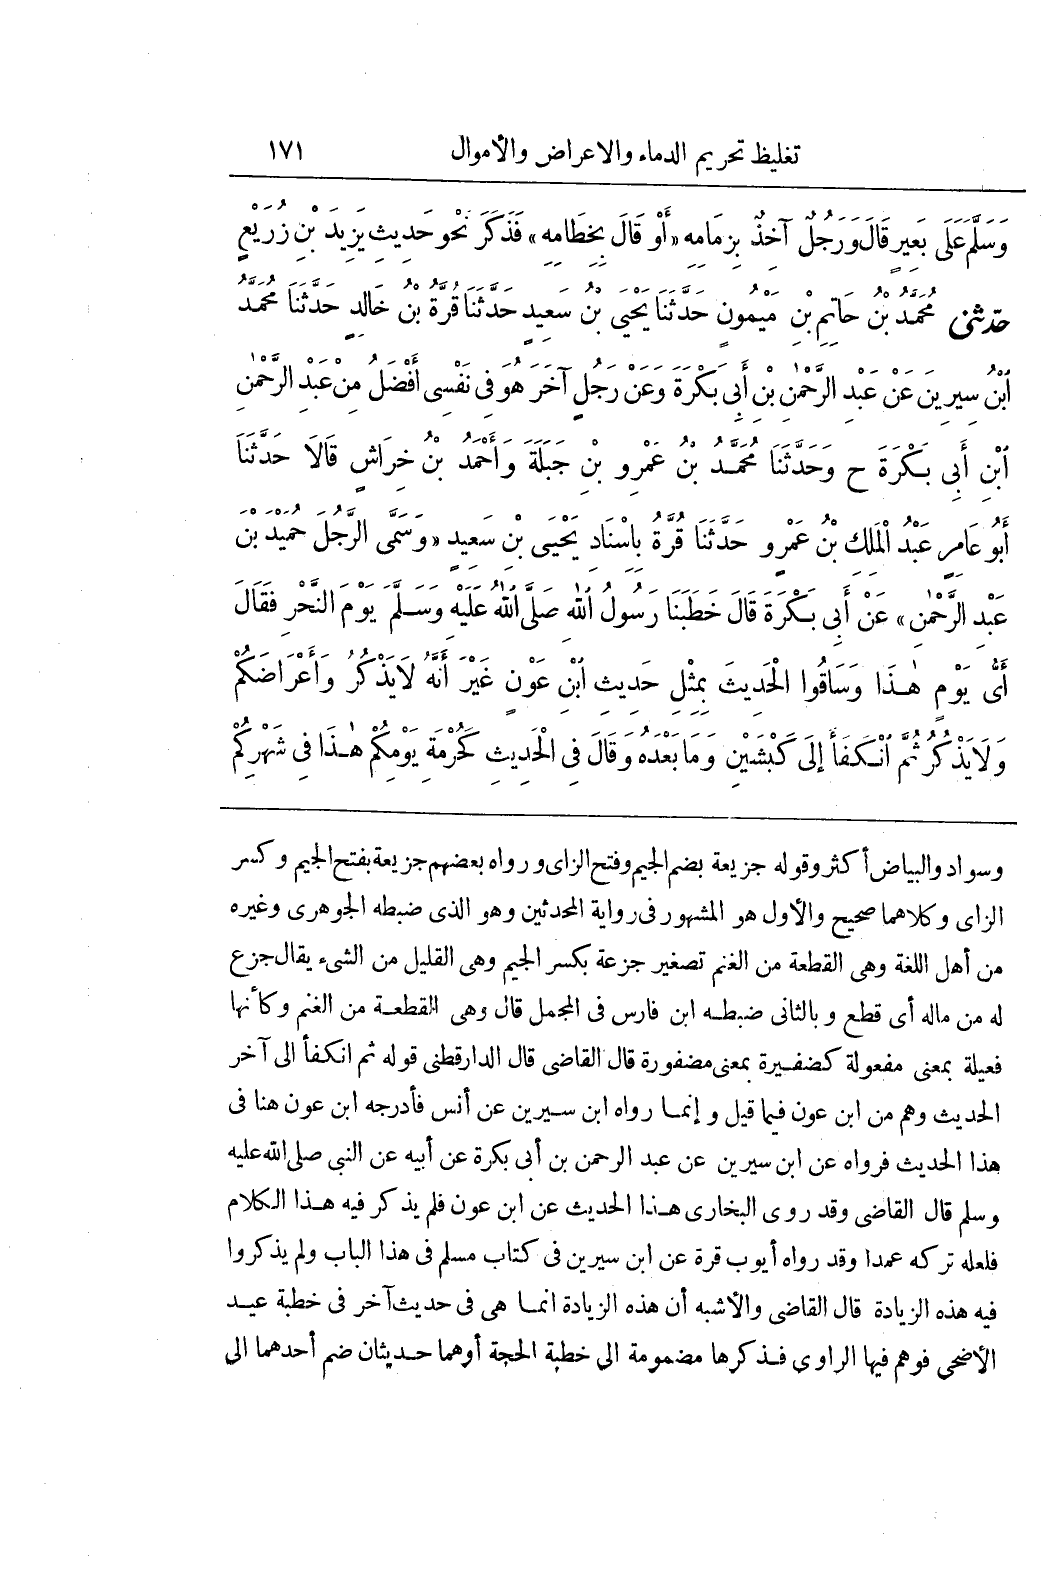 تغليظ تحريم الدماء والاعراض والأموال ١٧١
وَسَلَّمَ عَلَى بَعِيرٍ قَالَ وَرَجُلٌ آخِذٌ بِزِمَامِهِ «أَوْ قَالَ بِخِطَامِهِ» فَذَكَرَ نَحْوَ حَدِيثِ يَزِيدَ بْنِ زُرَيْعٍ
حدثنى مُحَمَّدُ بْنُ حَاتِمِ بْنِ مَيْمُونٍ حَدَّثَنَا يَحْيَى بْنُ سَعِيدٍ حَدَّثَنَا قُرَّةُ بْنُ خَالِدٍ حَدَّثَنَا مُحَمَّدُ
ابْنُ سِيرِينَ عَنْ عَبْدِ الرَّحْمٰنِ بْنِ أَبِى بَكْرَةَ وَعَنْ رَجُلٍ آخَرَ هُوَ فِى نَفْسِى أَفْضَلُ مِنْ عَبْدِ الرَّحْمٰنِ
ابْنِ أَبِى بَكْرَةَ ح وَحَدَّثَنَا مُحَمَّدُ بْنُ عَمْرِو بْنِ جَبَلَةَ وَأَحْمَدُ بْنُ خِرَاشٍ قَالَا حَدَّثَنَا
أَبُو عَامِرٍ عَبْدُ الْمَلِكِ بْنُ عَمْرٍو حَدَّثَنَا قُرَّةُ بِإِسْنَادِ يَحْيَى بْنِ سَعِيدٍ «وَسَمَّى الرَّجُلَ حُمَيْدَ بْنَ
عَبْدِ الرَّحْمٰنِ» عَنْ أَبِى بَكْرَةَ قَالَ خَطَبَنَا رَسُولُ اللّٰهِ صَلَّى اللّٰهُ عَلَيْهِ وَسَلَّمَ يَوْمَ النَّحْرِ فَقَالَ
أَىُّ يَوْمٍ هٰذَا وَسَاقُوا الْحَدِيثَ بِمِثْلِ حَدِيثِ ابْنِ عَوْنٍ غَيْرَ أَنَّهُ لَا يَذْكُرُ وَأَعْرَاضَكُمْ
وَلَا يَذْكُرُ ثُمَّ انْكَفَأَ إِلَى كَبْشَيْنِ وَمَا بَعْدَهُ وَقَالَ فِى الْحَدِيثِ كَحُرْمَةِ يَوْمِكُمْ هٰذَا فِى شَهْرِكُمْ
وسواد والبياض أكثر وقوله جزيعة بضم الجيم وفتح الزاى ورواه بعضهم جزيعة بفتح الجيم وكسر
الزاى وكلاهما صحيح والأول هو المشهور فى رواية المحدثين وهو الذى ضبطه الجوهرى وغيره
من أهل اللغة وهى القطعة من الغنم تصغير جزعة بكسر الجيم وهى القليل من الشىء يقال جزع
له من ماله أى قطع وبالثانى ضبطه ابن فارس فى المجمل قال وهى القطعة من الغنم وكأنها
فعيلة بمعنى مفعولة كضفيرة بمعنى مضفورة قال القاضى قال الدارقطنى قوله ثم انكفأ الى آخر
الحديث وهم من ابن عون فيما قيل وإنما رواه ابن سيرين عن أنس فأدرجه ابن عون هنا فى
هذا الحديث فرواه عن ابن سيرين عن عبد الرحمن بن أبى بكرة عن أبيه عن النبى صلى الله عليه
وسلم قال القاضى وقد روى البخارى هذا الحديث عن ابن عون فلم يذكر فيه هذا الكلام
فلعله تركه عمدا وقد رواه أيوب قرة عن ابن سيرين فى كتاب مسلم فى هذا الباب ولم يذكروا
فيه هذه الزيادة قال القاضى والأشبه أن هذه الزيادة انما هى فى حديث آخر فى خطبة عيد
الأضحى فوهم فيها الراوى فذكرها مضمومة الى خطبة الحجة أوهما حديثان ضم أحدهما الى